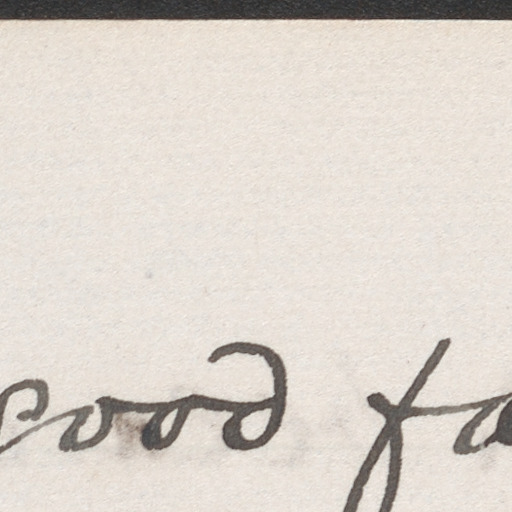 good fa